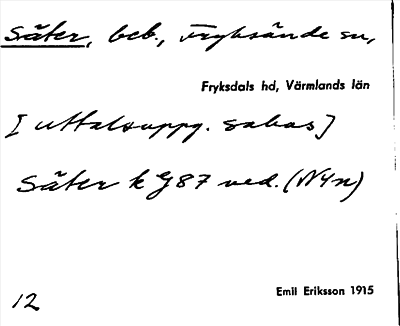 Säter, beb., Fryksände sn,
Fryksdals hd, Värmlands län
[uttalsuppg. saknas]
Säter k G87 ved. (N4n)
Emil Eriksson 1915
12